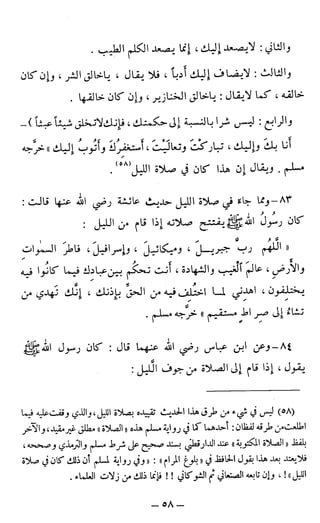 والثاني : لايصعد إليك ، إنما يصعد الكلم الطيب .
والثالث : لايضاف إليك أدباً ، فلا يقال ، ياخالق الشر ، وإن كان
خالقه ، كما لايقال : ياخالق الخنازير ، وإن كان خالقها .
والرابع : ليس شرا بالنسبة إلى حكمتك ، فإنك لاتخلق شيئاً عبثاً ) –
أنا بك وإليك ، تباركت وتعاليت ، أستغفرك وأتوب إليك » خرَّجه
مسلم . ويقال إن هذا كان في صلاة الليل(٥٨) .
٨٣ – ومما جاء في صلاة الليل حديث عائشة رضي الله عنها قالت :
كان رسول الله ﷺ يفتتح صلاته إذا قام من الليل :
« اللَّهم ربَّ جبريـل ، وميكائيـل ، وإسرافيل ، فاطر السموات
والأرض ، عالم الغيب والشهادة ، أنت تحكم بين عبادك فيما كانوا فيه
يختلفون ، اهدني لما اختُلِف فيه من الحقّ بإذنك ، إنَّك تهدي من
تشاءُ إلى صراط مستقيم » خرَّجه مسلم .
٨٤ – وعن ابن عباس رضي الله عنهما قال : كان رسول الله ﷺ
يقول ، إذا قام إلى الصلاة من جوف الليل :
(٥٨) ليس في شيء من طرق هذا الحديث تقييده بصلاة الليل ، والذي وقفت عليه فيما
اطلعت من طرقه لفظان : أحدهما كما في رواية مسلم هذه « الصلاة » مطلق غير مقيد ، والآخر
بلفظ « الصلاة المكتوبة » عند الدارقطني بسند صحيح على شرط مسلم والترمذي وصححه ،
فلا يعتد بعد هذا بقول الحافظ في « بلوغ المرام » : « وفي رواية لمسلم أن ذلك كان في صلاة
الليل » ! ، وإن تابعه الصنعاني ثم الشوكاني ! ! فإنما ذلك من زلات العلماء .
– ٥٨ –